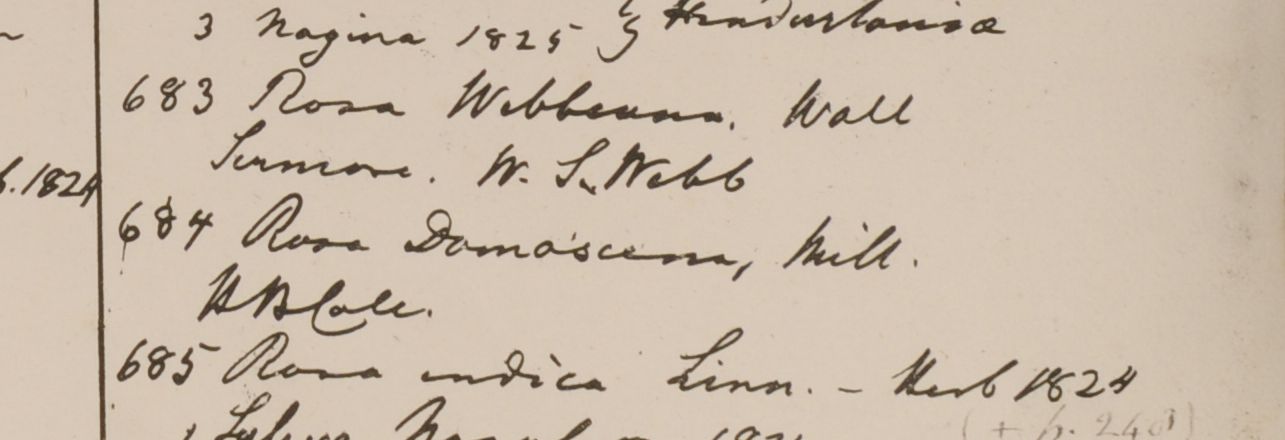 3 Nagina 1825 } Hindustaniae
683 Rosa Webbeana. Wall
Sirmore. W. S. Webb
b. 1824
684 Rosa Damascena, Mill.
H B Calc.
685 Rosa indica Linn. - Herb 1824
1 Sylvis 1821
(+ p. 240)